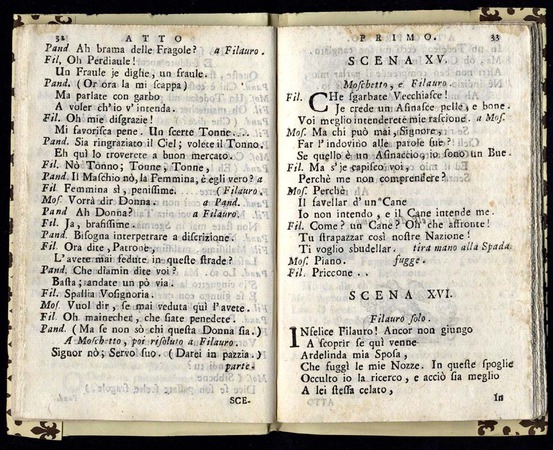 32 ATTO
Pand. Ah brama delle Fragole? a Filauro.
Fil. Oh Perdiaule!
Un Fraule je dighe, un fraule.
Pand. (Or ora la mi scappa)
Ma parlate con garbo
A voler ch'io v'intenda.
Fil. Oh mie disgrazie!
Mi favorisca pene. Un scerte Tonne....
Pand. Sia ringraziato il Ciel; volete il Tonno.
Eh quì lo troverete a buon mercato.
Fil. Nò Tònno; Tonne, Tonne,
Pand. Il Maschio nò, la Femmina, è egli vero? a
Fil Femmina sì, penissime. (Filauro.
Mos Vorrà dir Donna. a Pand.
Pand Ah Donna? a Filauro.
Fil. Ja, brafissime.
Pand. Bisogna interpetrare a discrizione.
Fil. Ora dite, Patrone,
L'avere mai fedute in queste strade?
Pand. Che diamin dite voi?
Basta; andate un pò via.
Fil. Spallia Vosignoria.
Mos. Vuol dir, se mai veduta quì l'avete.
Fil. Oh mainechet, che siate penedere.
Pand. (Ma se non sò chi questa Donna sia.)
A Moschetto, poi risoluto a Filauro.
Signor nò; Servo suo. (Darei in pazzia.)
parte.
SCE-
PRIMO. 33
SCENA XV.
Moschetto, e Filauro.
Fil. CHe sgarbate Vecchiasce!
Je crede un Asinasce pelle, e bone.
Voi meglio intenderete mie rascione. a Mos.
Mos. Ma chi può mai, Signore,
Far l'indovino alle parole sue?
Se quello è un Asinaccio, io sono un Bue.
Fil. Ma s'je capisco voi,
Perchè me non comprendere?
Mos. Perchè
Il favellar d'un Cane
Io non intendo, e il Cane intende me.
Fil. Come? un Cane? Oh che affronte!
Tu strapazzar così nostre Nazione!
Ti voglio sbudellar. tira mano alla Spada.
Mos. Piano. fugge.
Fil. Priccone ..
SCENA XVI.
Filauro solo.
INfelice Filauro! Ancor non giungo
A scoprir se quì venne
Ardelinda mia Sposa,
Che fuggì le mie Nozze. In queste spoglie
Occulto io la ricerco, e acciò sia meglio
A lei stessa celato,
In